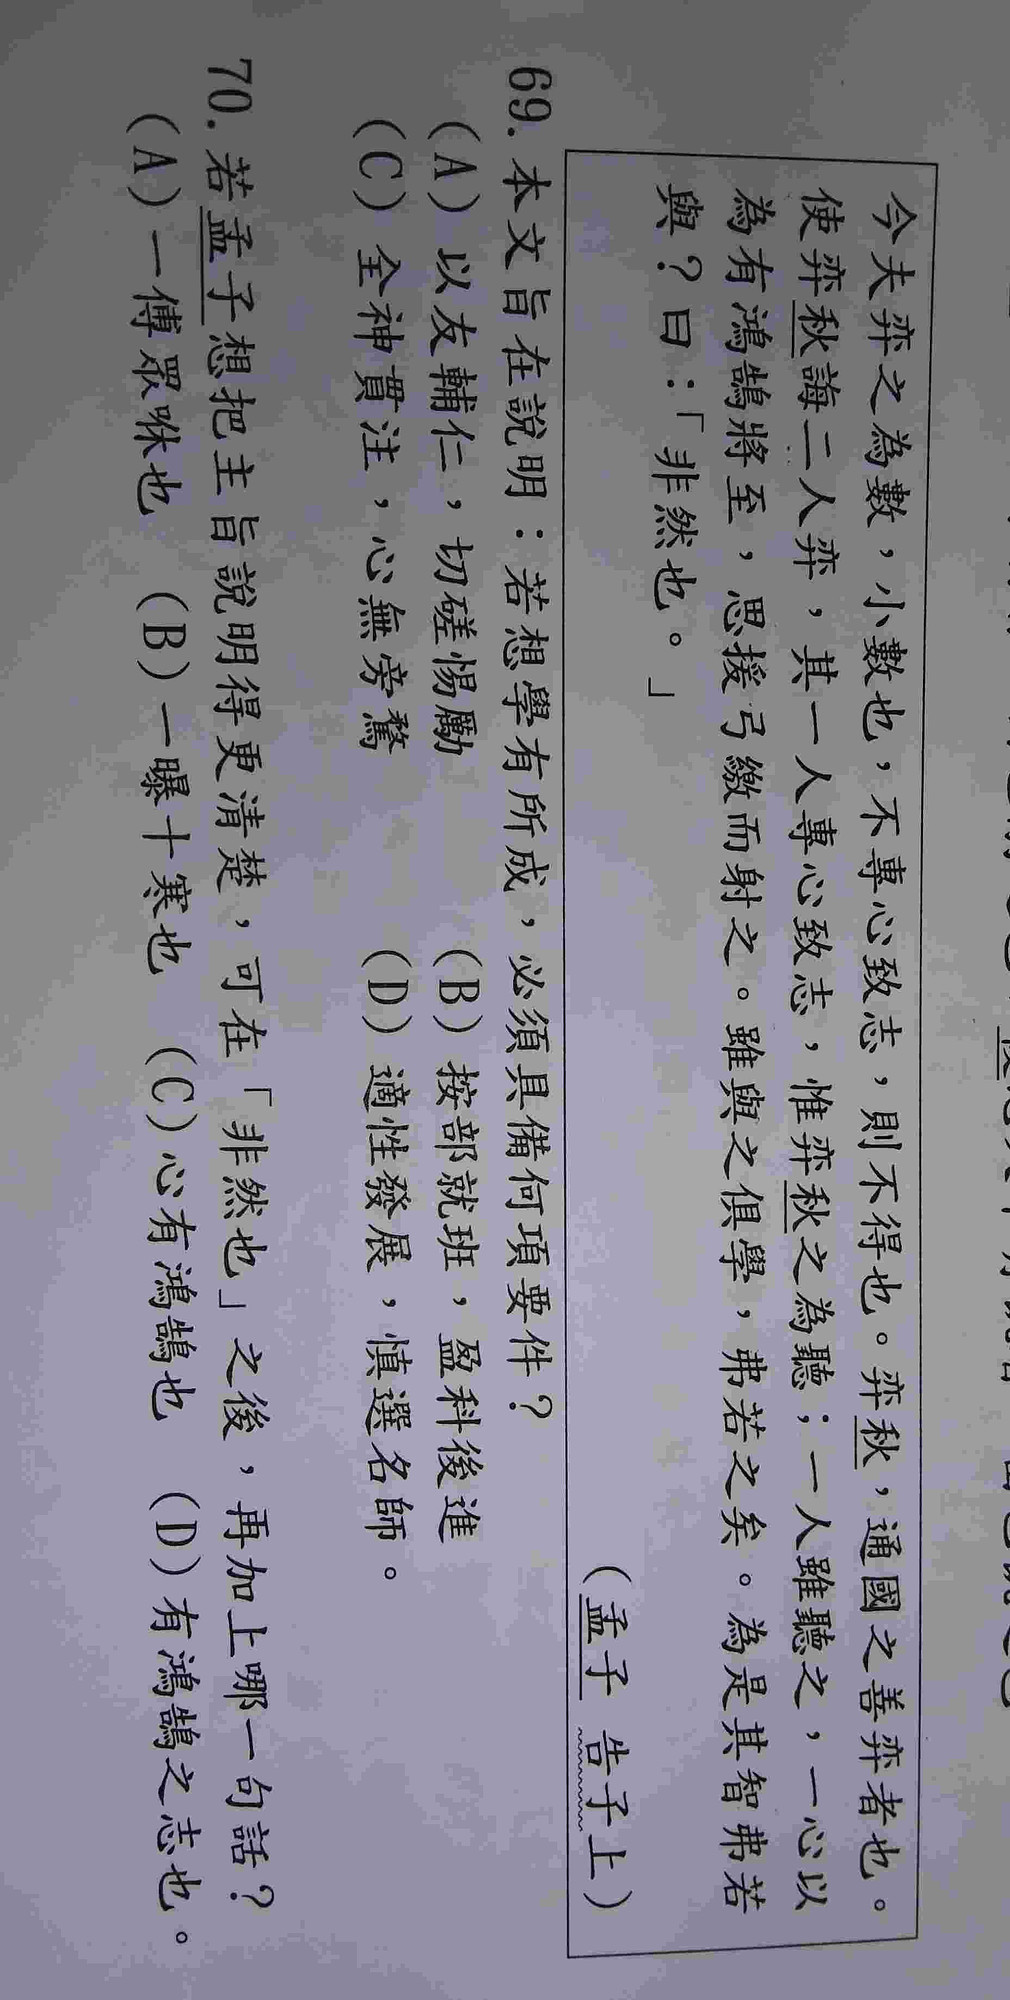 今夫弈之為數，小數也，不專心致志，則不得也。弈秋，通國之善弈者也。
使弈秋誨二人弈，其一人專心致志，惟弈秋之為聽；一人雖聽之，一心以
為有鴻鵠將至，思援弓繳而射之。雖與之俱學，弗若之矣。為是其智弗若
與？曰：「非然也。」
（孟子 告子上）
69. 本文旨在說明：若想學有所成，必須具備何項要件？
(A) 以友輔仁，切磋惕勵 (B) 按部就班，盈科後進
(C) 全神貫注，心無旁騖 (D) 適性發展，慎選名師。
70. 若孟子想把主旨說明得更清楚，可在「非然也」之後，再加上哪一句話？
(A) 一傅眾咻也 (B) 一曝十寒也 (C) 心有鴻鵠也 (D) 有鴻鵠之志也。